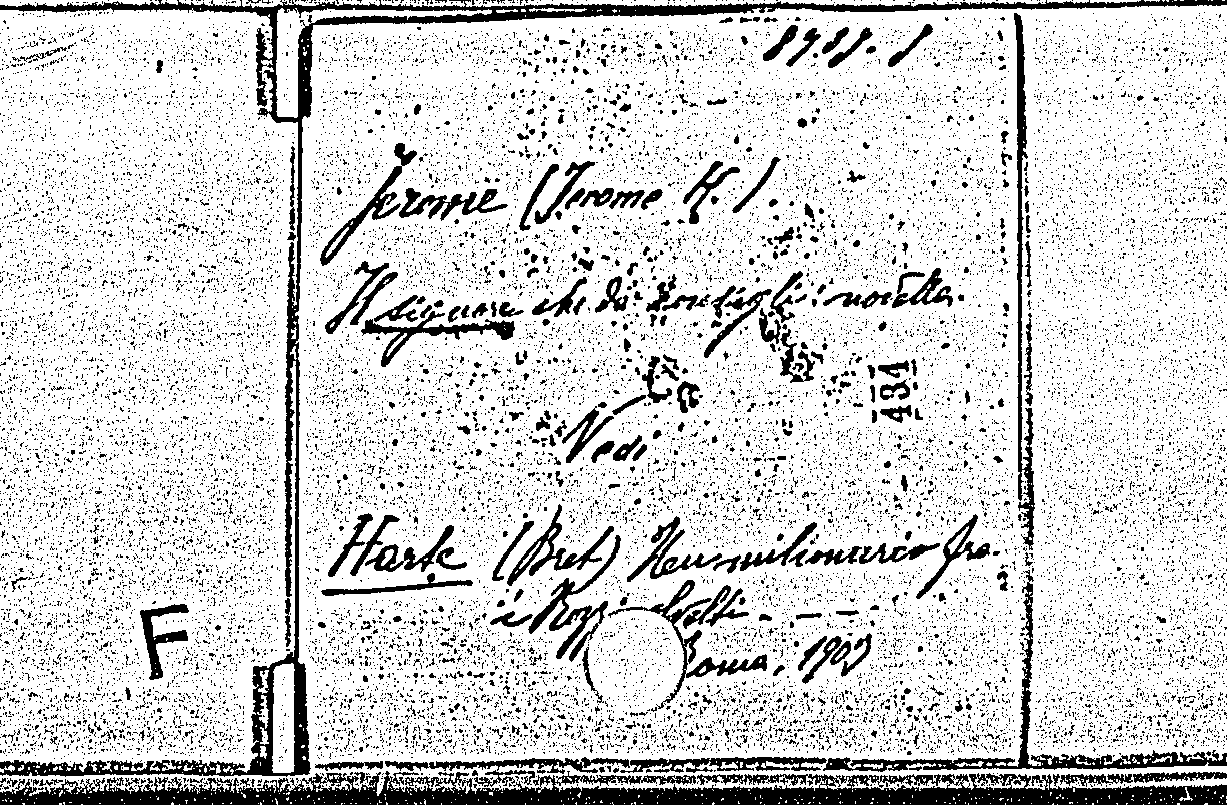 Jerome (Jerome K.)
Il signore che dà consigli: novella.
434
Vedi
Harte (Bret) milionario fra
i Rozzi
Roma, 1903
F